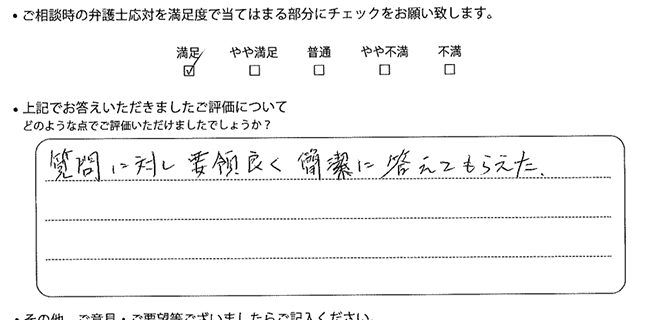 ・ご相談時の弁護士応対を満足度で当てはまる部分にチェックをお願い致します。
満足 やや満足 普通 やや不満 不満
☑ □ □ □ □
・上記でお答えいただきましたご評価について
どのような点でご評価いただけましたでしょうか？
質問に対し要領良く簡潔に答えてもらえた.
・その他、ご意見・ご要望等ございましたらご記入ください。